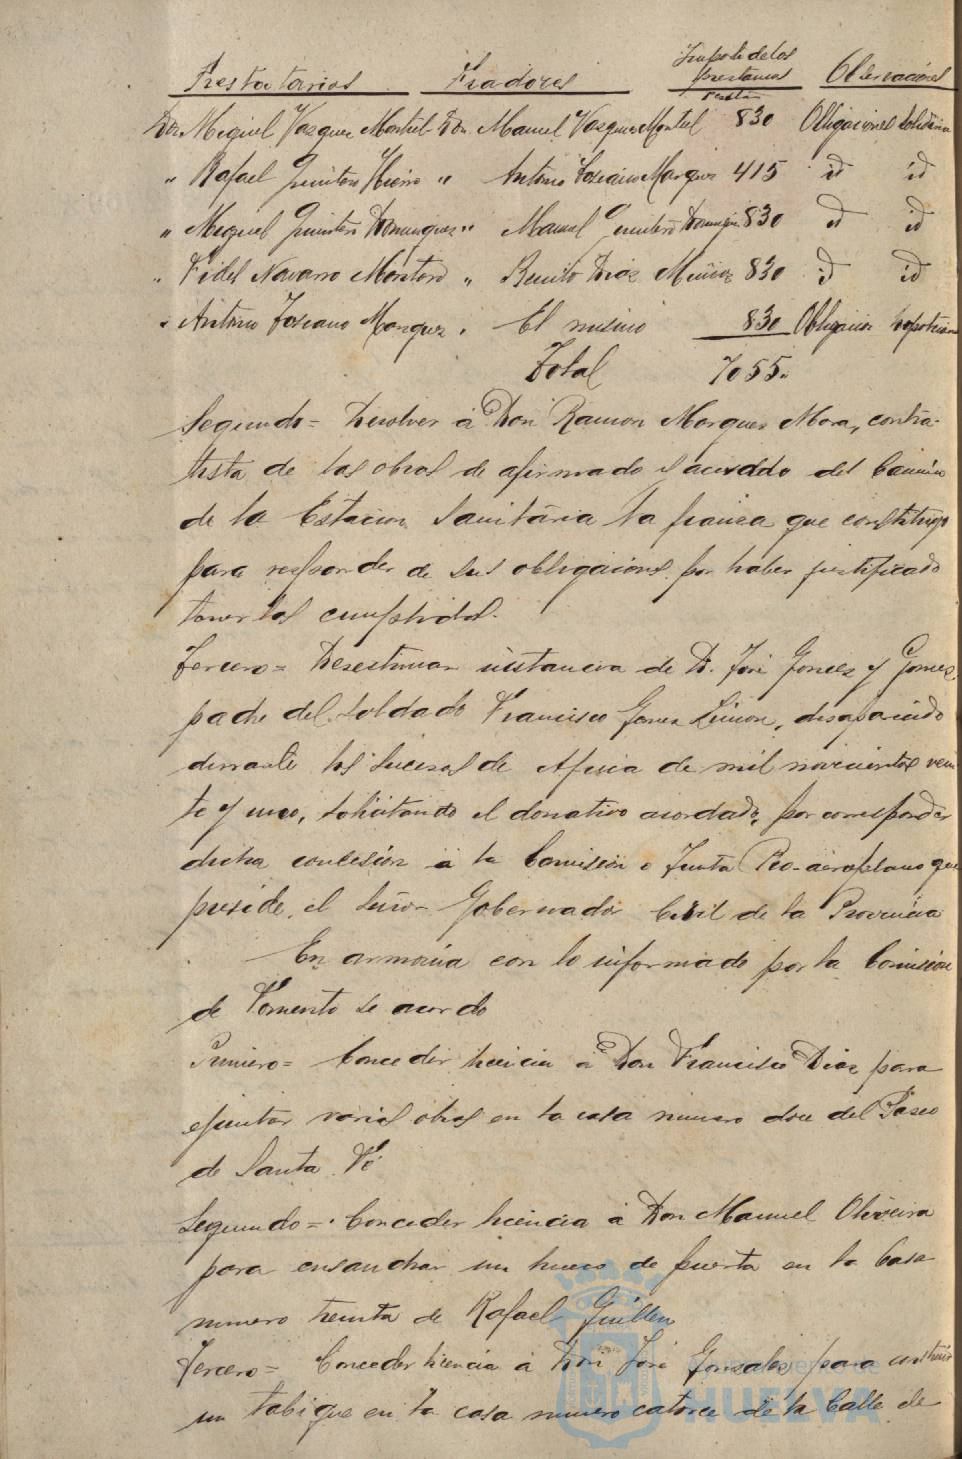 Prestatarios Fiadores Importe de los prestamos Observaciones
Pesetas
Don Miguel Vazquez Montiel Don Manuel Vazquez Montiel 830 Obligaciones solidaria
" Rafael Quintero Hierro " Antonio Toscano Marquez 415 id id
" Miguel Quintero Dominguez " Manuel Quintero Dominguez 830 id id
" Fidel Navarro Montero " Benito Diaz Muñoz 830 id id
" Antonio Toscano Marquez " El mismo 830 Obligacion hipotecaria
Total 7055.
Segundo = Devolver á Don Ramon Marquez Mora, contra-
tista de las obras de afirmado y acerado del Camino
de la Estacion Sanitaria la fianza que constituyó
para responder de sus obligaciones por haber justificado
tenerlas cumplidas.
Tercero = Desestimar instancia de D. José Gomez y Gomez,
padre del soldado Francisco Gomez Limon, desaparecido
durante los sucesos de Africa de mil novecientos vein
te y uno, solicitando el donativo acordado, por corresponder
dicha concesión á la Comisión o Junta Pro-aeroplano que
preside el Señor Gobernador Civil de la Provincia
En armonia con lo informado por la Comision
de Fomento se acordo
Primero = Conceder licencia á Don Francisco Diaz para
ejecutar varias obras en la casa numero doce del Paseo
de Santa Fé
Segundo = Conceder licencia á Don Manuel Oliveira
para ensanchar un hueco de puerta en la Casa
numero treinta de Rafael Guillen
Tercero = Conceder licencia á Don José Gonzalez para construir
un tabique en la casa numero catorce de la Calle de
Ayuntamiento de
HUELVA